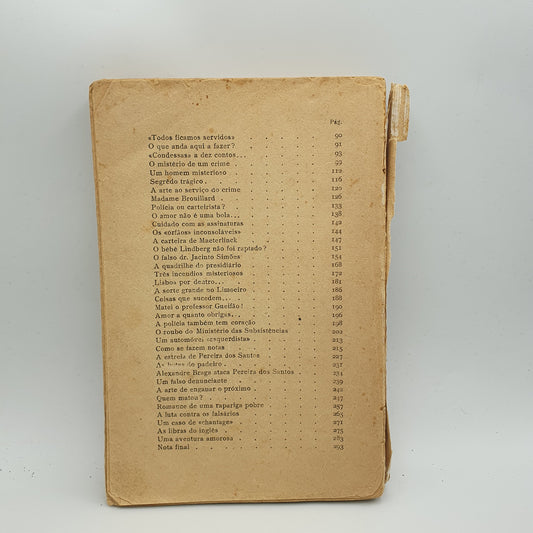 Pág.
«Todos ficamos servidos» 90
O que anda aqui a fazer? 91
«Condessas» a dez contos... 93
O mistério de um crime 99
Um homem misterioso 112
Segrêdo trágico 116
A arte ao serviço do crime 120
Madame Brouillard 126
Polícia ou carteirista? 133
O amor não é uma bola... 138
Cuidado com as assinaturas 142
Os «órfãos» inconsoláveis 144
A carteira de Maeterlinck 147
O bébé Lindberg não foi raptado? 151
O falso dr. Jacinto Simões 154
A quadrilha do presidiário 168
Três incendios misteriosos 172
Lisboa por dentro... 181
A sorte grande no Limoeiro 186
Coisas que sucedem... 188
Matei o professor Gueifão! 190
Amor a quanto obrigas... 196
A polícia também tem coração 198
O roubo do Ministério das Subsistências 200
Um automóvel esquerdista 213
Como se fazem notas 215
A estrela de Pereira dos Santos 227
As botas do padeiro 231
Alexandre Braga ataca Pereira dos Santos 234
Um falso denunciante 239
A arte de enganar o próximo 242
Quem matou? 247
Romance de uma rapariga pobre 257
A luta contra os falsários 265
Um caso de «chantage» 271
As libras do inglês 275
Uma aventura amorosa 283
Nota final 293